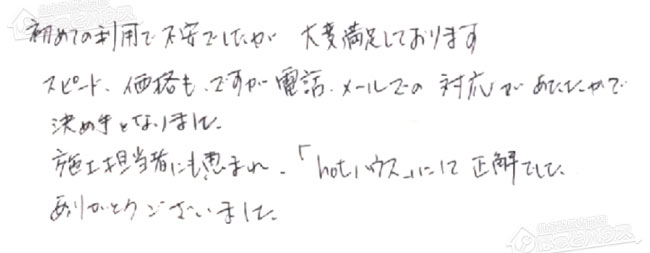 初めての利用で不安でしたが 大変満足しております
スピード、価格も、ですが電話、メールでの 対応があたたかで
決め手となりました。
施工担当者にも恵まれ、「hotハウス」にして正解でした。
ありがとうございました。